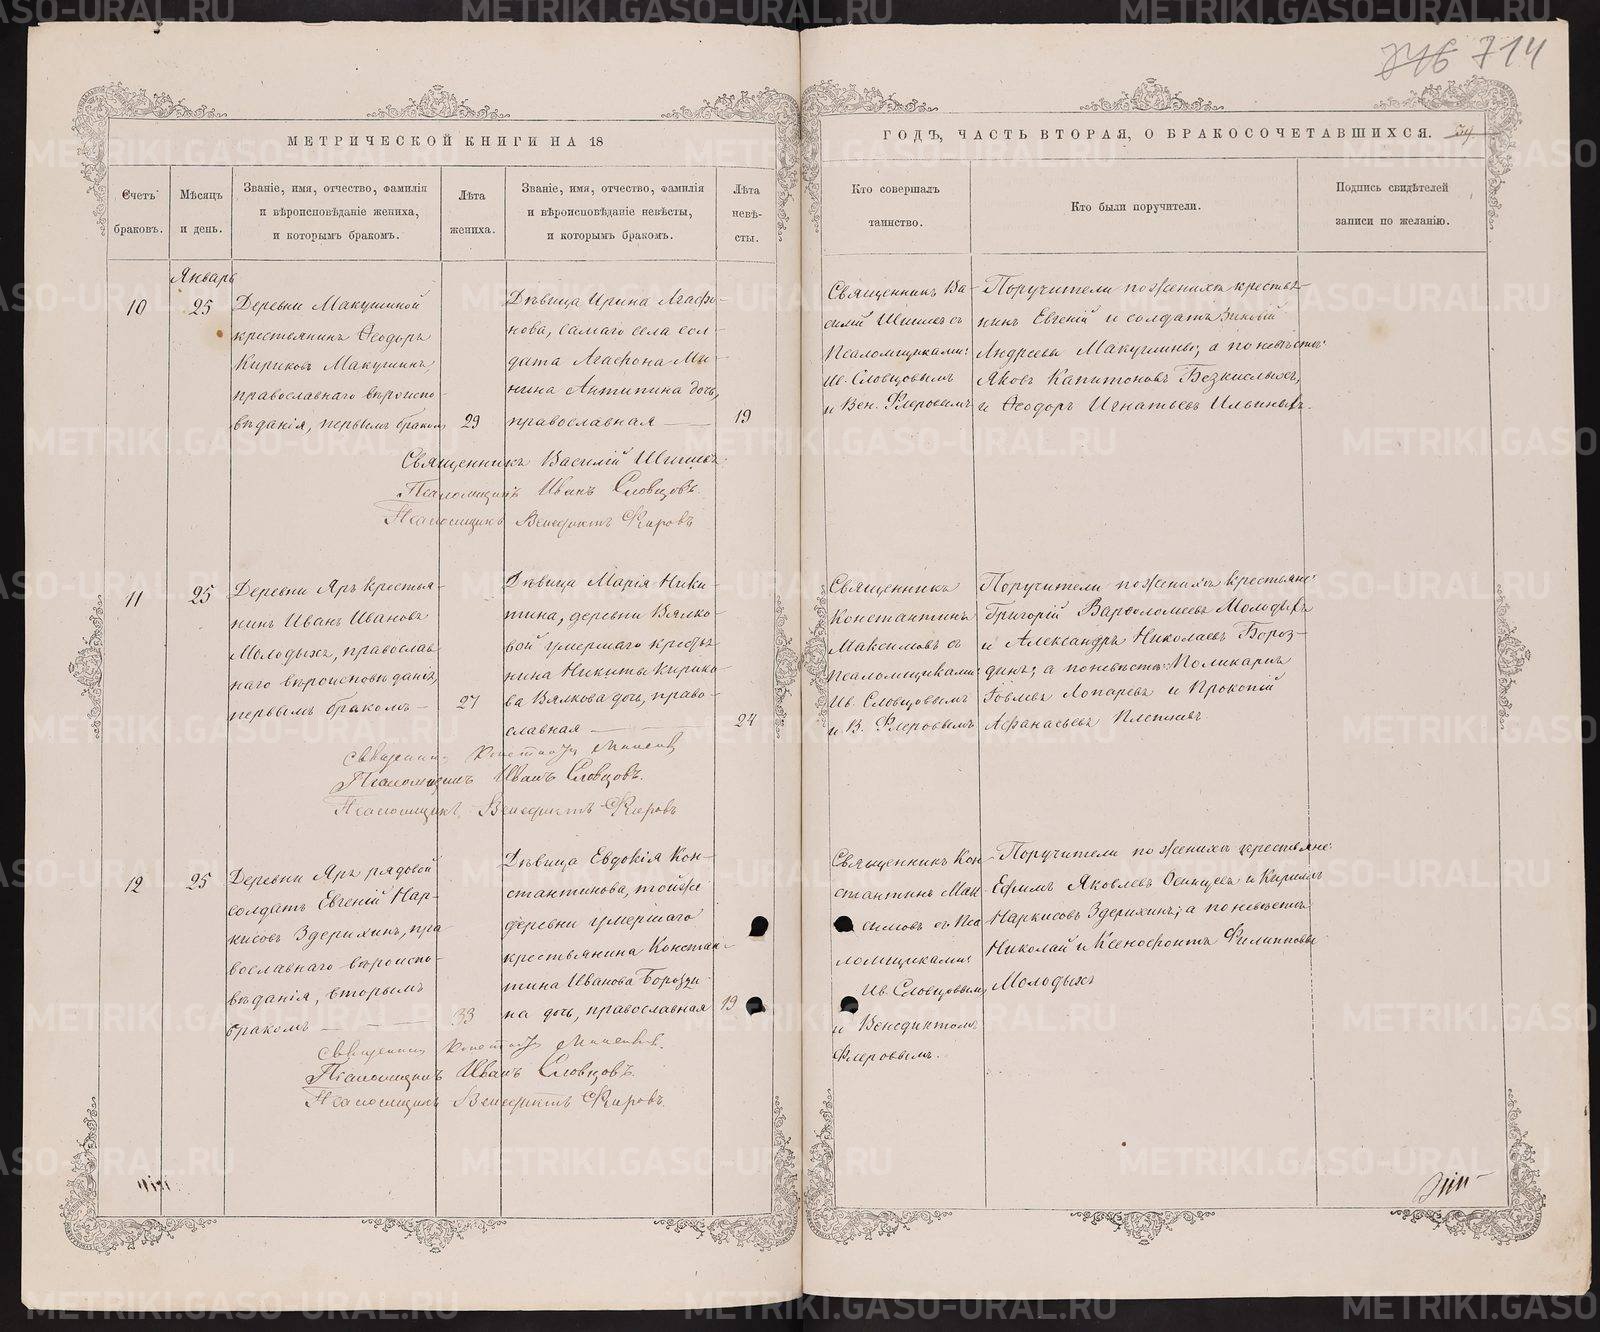 746 714
МЕТРИЧЕСКОЙ КНИГИ НА 18
ГОДЪ, ЧАСТЬ ВТОРАЯ, О БРАКОСОЧЕТАВШИХСЯ. 54
Счетъ
браковъ.
Мѣсяцъ
и день.
Званіе, имя, отчество, фамилія
и вѣроисповѣданіе жениха,
и которымъ бракомъ.
Лѣта
жениха.
Званіе, имя, отчество, фамилія
и вѣроисповѣданіе невѣсты,
и которымъ бракомъ.
Лѣта
невѣ-
сты.
Кто совершалъ
таинство.
Кто были поручители.
Подпись свидѣтелей
записи по желанію.
Январь
10
25
Деревни Макушиной
крестьянинъ Ѳеодоръ
Кириковъ Макушинъ,
православнаго вѣроиспо-
вѣданія, первымъ бракомъ
29
Дѣвица Ирина Агафо-
нова, самаго села сол-
дата Агафона Ми-
нина Антипина дочь,
православная —
19
Священникъ Ва-
силій Шишевъ съ
Псаломщиками:
Ив. Словцовымъ
и Вен. Флеровымъ
Поручители по женихѣ крестья-
нинъ Евгеній и солдатъ Зиновій
Андреевы Макушины; а по невѣстѣ:
Яковъ Капитоновъ Безкислыхъ,
и Ѳеодоръ Игнатьевъ Ильиныхъ.
Священникъ Василій Шишевъ
Псаломщикъ Иванъ Словцовъ.
Псаломщикъ Венедиктъ Флеровъ
11
25
Деревни Яръ крестья-
нинъ Иванъ Ивановъ
Молодыхъ, православ
наго вѣроисповѣданія,
первымъ бракомъ —
27
Дѣвица Марія Ники-
тина, деревни Вялко-
вой умершаго крестья
нина Никиты Кирико-
ва Вялкова дочь, право-
славная —
24
Священникъ
Константинъ
Максимовъ съ
псаломщиками
Ив. Словцовымъ
и В. Флеровымъ
Поручители по женихѣ крестьяне:
Григорій Варѳоломеевъ Молодыхъ
и Александръ Николаевъ Бороз-
динъ; а по невѣстѣ: Поликарпъ
Іовлевъ Лопаревъ и Прокопій
Афанасьевъ
Священникъ Константинъ
Псаломщикъ Иванъ Словцовъ.
Псаломщикъ Венедиктъ Флеровъ
12
25
Деревни Яръ рядовой
солдатъ Евгеній Нар-
кисовъ Здерихинъ, пра
вославнаго вѣроиспо-
вѣданія, вторымъ
бракомъ —
33
Дѣвица Евдокія Кон-
стантинова, той же
деревни умершаго
крестьянина Констан-
тина Иванова Борозди-
на дочь, православная
19
Священникъ Кон
стантинъ Мак
симовъ съ Пса
ломщиками:
Ив. Словцовымъ,
и Венедиктомъ
Флеровымъ.
Поручители по женихѣ крестьяне:
Ефимъ Яковлевъ и Кириллъ
Наркисовъ Здерихинъ; а по невѣстѣ
Николай и Ксенофонтъ Филипповы
Молодыхъ
Священникъ Константинъ
Псаломщикъ Иванъ Словцовъ.
Псаломщикъ Венедиктъ Флеровъ.
METRIKI.GASO-URAL.RU